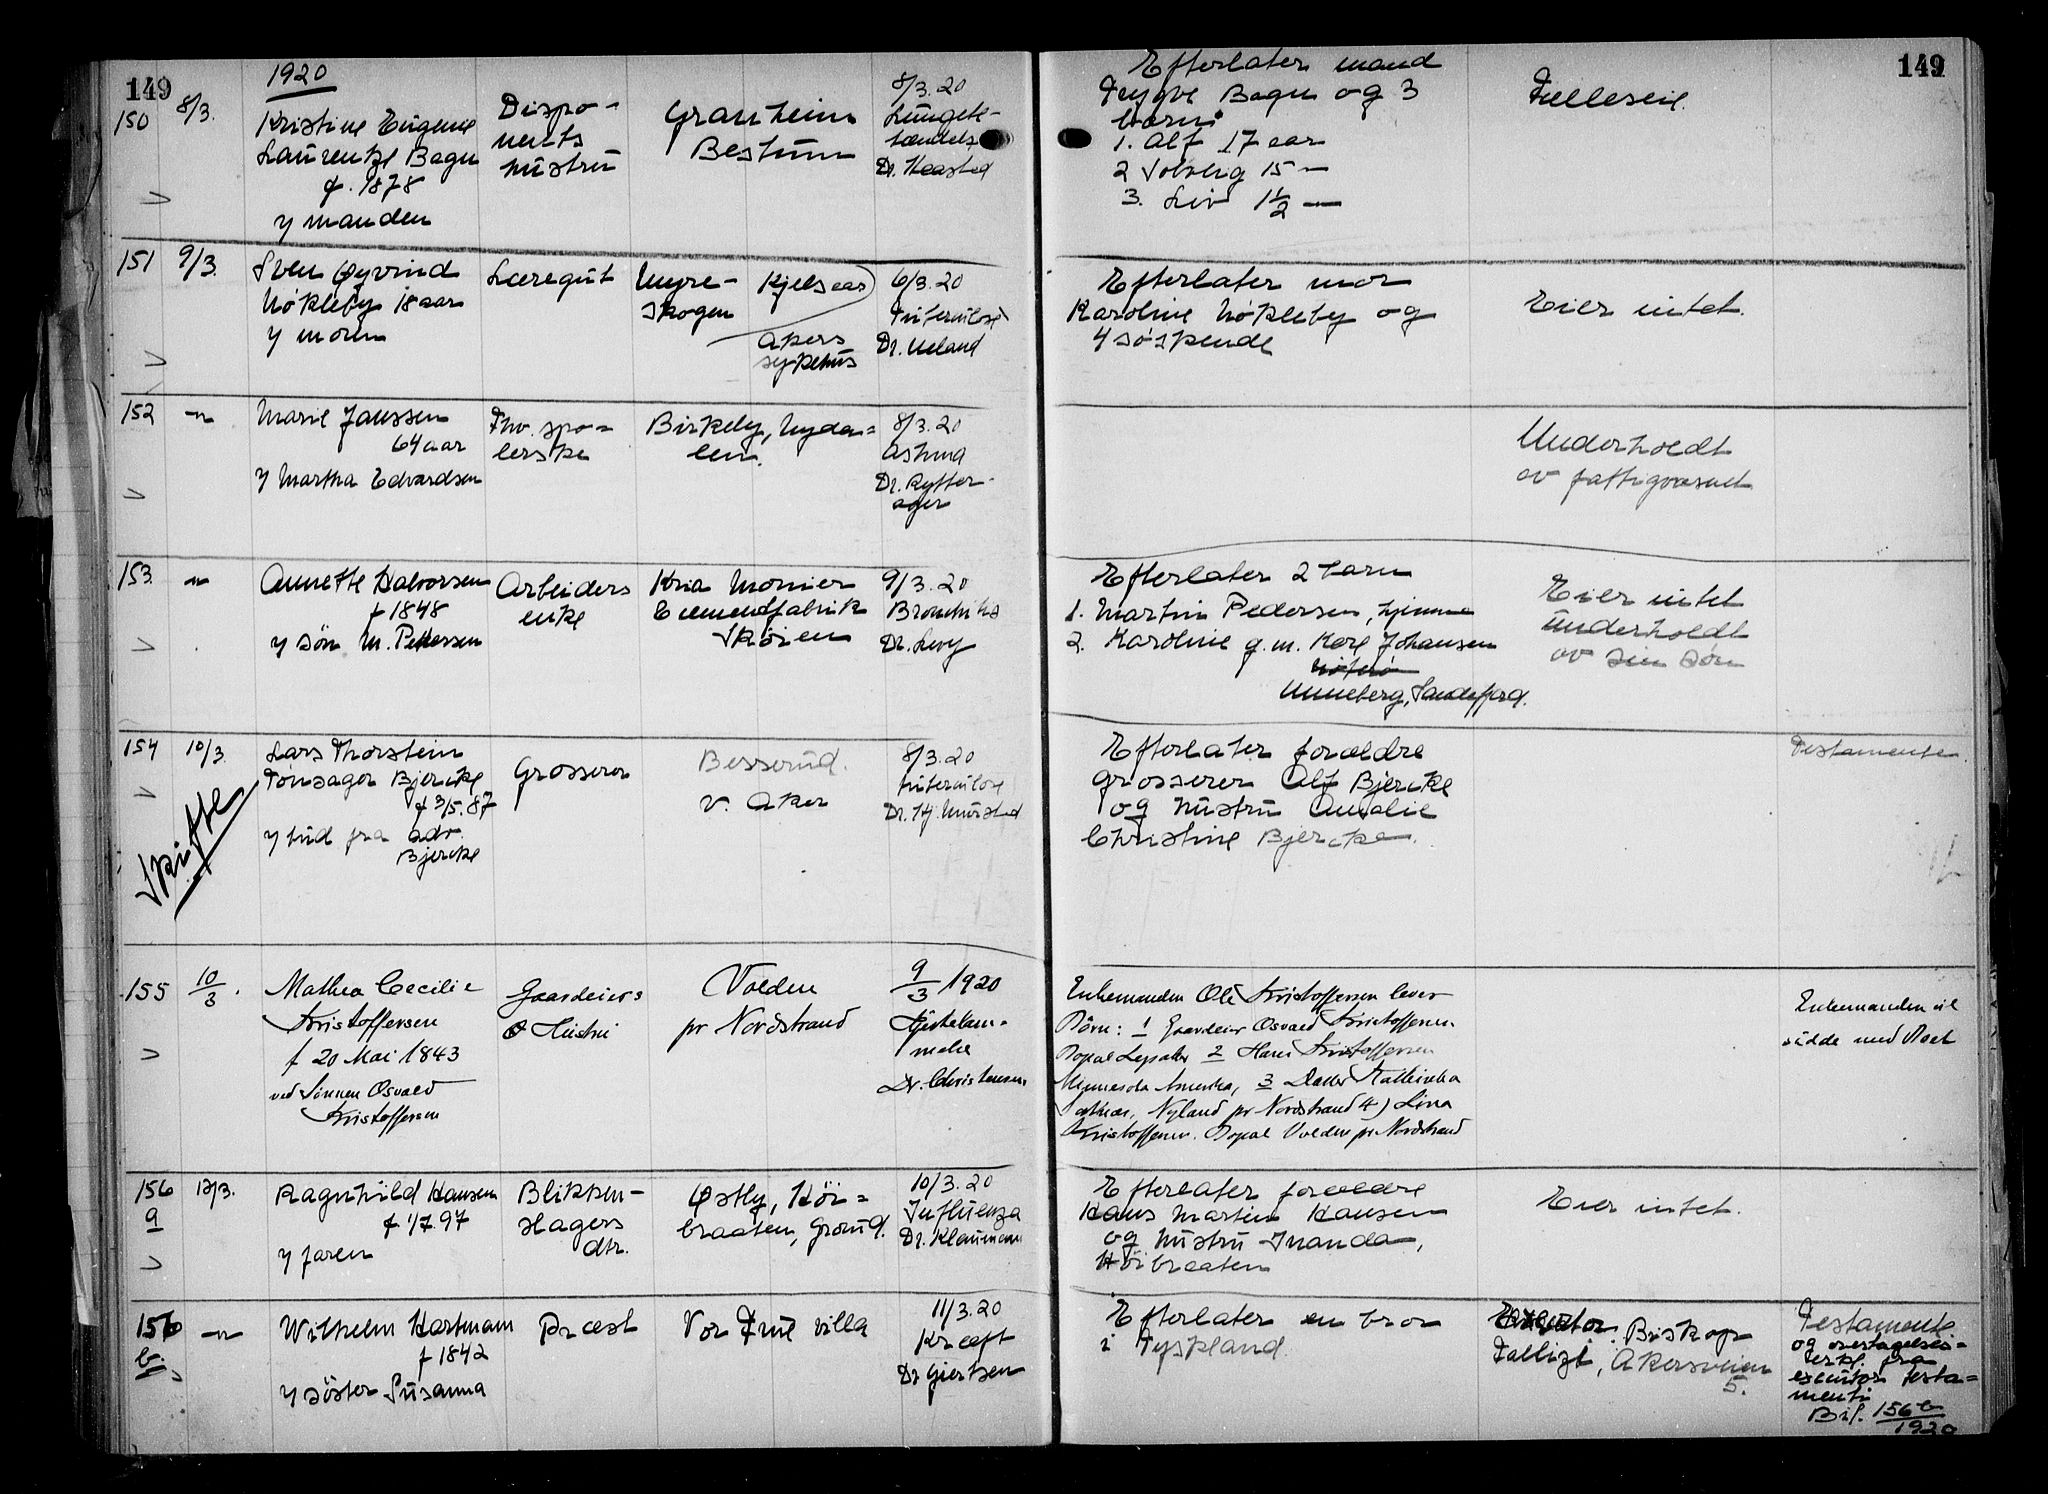 149
1920
150
8/3.
Kristine Eugenie
Laurentze Bagn
f. 1878
v manden
Dispo-
nents
hustru
Granheim
Bestum
8/3.20
Lungebe-
tændelse
Efterlater mand
Trygve Bagn og 3
barn:
1. Alf 17 aar
2 Solveig 15 –
3. Liv 1½ –
Fælleseie.
149
151
9/3.
Sven Øyvind
Nökleby 18 aar
v moren
Læregut
Myre-
skogen
Kjelsaas
Akers
sykehus
6/3.20
Tuberkulose
Dr. Ueland
Efterlater mor
Karoline Nökleby og
4 söskende
Eier intet.
152
–"–
Marie Janssen
64 aar
v Martha Edvardsen
Fhv. spo-
lerske
Birkely, Nyda-
len.
8/3.20
Astma
Dr. Rytter-
ager
Underholdt
av fattigvæsenet
153.
–"–
Annette Halvorsen
f 1848
v sön M. Pedersen
Arbeiders
enke
Kria Monier
Cementfabrik
Sköien
9/3.20
Bronchitis
Dr. Levy
Efterlater 2 barn
1. Martin Pedersen, hjemme
2. Karoline g. m. Karl Johansen
Nöterö
Unneberg, Sandefjord.
Eier intet
Underholdt
av sin sön
154
10/3.
Lars Thorstein
Tönsager Bjercke
f 3/5.87
v bud fra adv.
Bjercke
Skifte
Grosserer
Besserud.
V. Aker
8/3.20
tuberkulose
Dr. Hj. Mürsted
Efterlater forældre
grosserer Alf Bjercke
og hustru Amalie
Christine Bjercke.
Testamente
155
10/3.
Mathea Cecilie
Kristoffersen
f 20 Mai 1843
ved Sönnen Osvald
Kristoffersen
Gaardeiers
Hustru
Volden
pr Nordstrand
9/3 1920
Dr. Christensen
Enkemanden Ole Kristoffersen lever
Börn: 1 Gaardeier Osvald Kristoffersen
2 Hans Kristoffersen
Minnesota Amerika, 3 Datter
Nyland pr Nordstrand 4) Lina
Kristoffersen. Bopæl Volden pr. Nordstrand
Enkemanden vil
sidde med Boet
156
a
12/3.
Ragnhild Hansen
f 1/7 97
v faren
Blikken-
slagers
dtr.
Østly, Höi-
braaten, Grorud.
10/3.20
Influenza
Dr. Klaumann
Efterlater forældre
Hans Martin Hansen
og hustru Inanda,
Höibraaten
Eier intet.
156
b.
–"–
Wilhelm Hartmann
f 1842
v söster Susanna
Præst
Vor Frue villa
11/3.20
Kræft
Dr Giertsen
Efterlater en bror
i Tyskland
Executor: Biskop
Fallize, Akersveien
5.
Testamente
og overtagelses-
erkl. fra
executor testa-
menti
Bil. 156 b/1920